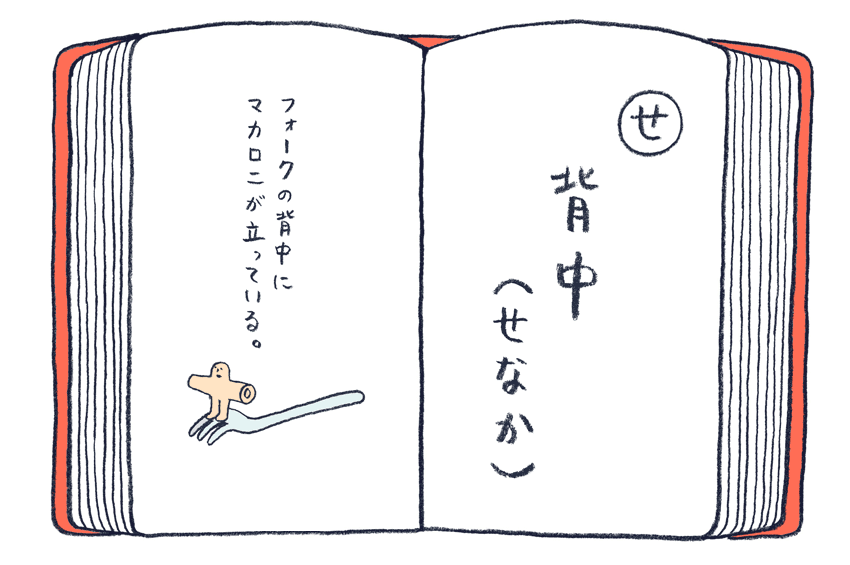 せ
背中
（せなか）
フォークの背中に
マカロニが立っている。